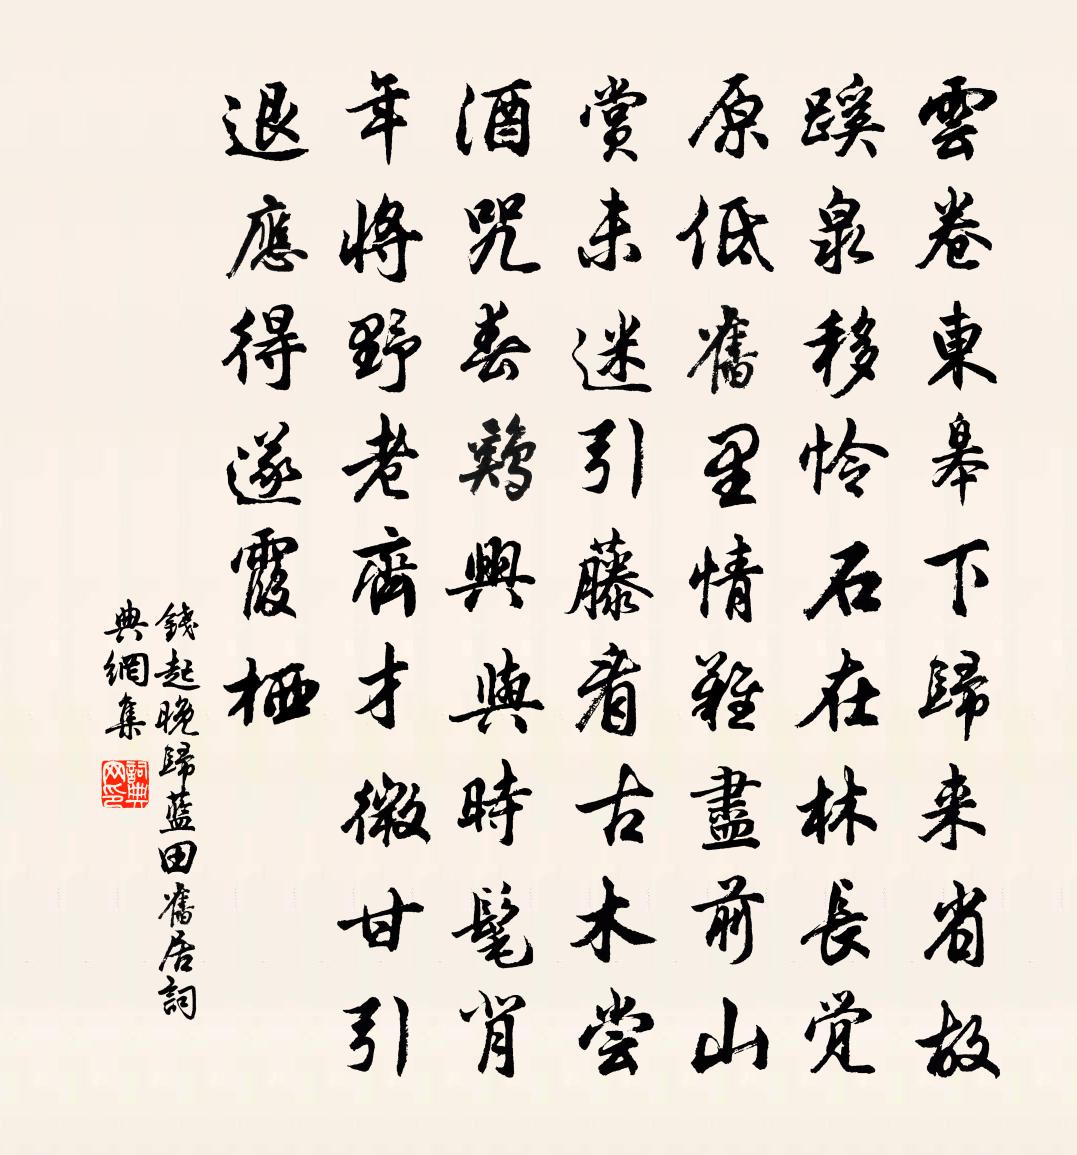 雲卷東皋下歸来省故
蹊泉移怜石在林長觉
原低舊里情難盡前山
賞未迷引藤看古木尝
酒咒春鷄興與時髦背
年将野老齊才微甘引
退應得遂霞栖
錢起晚歸藍田舊居詞
典網集
詞典网印